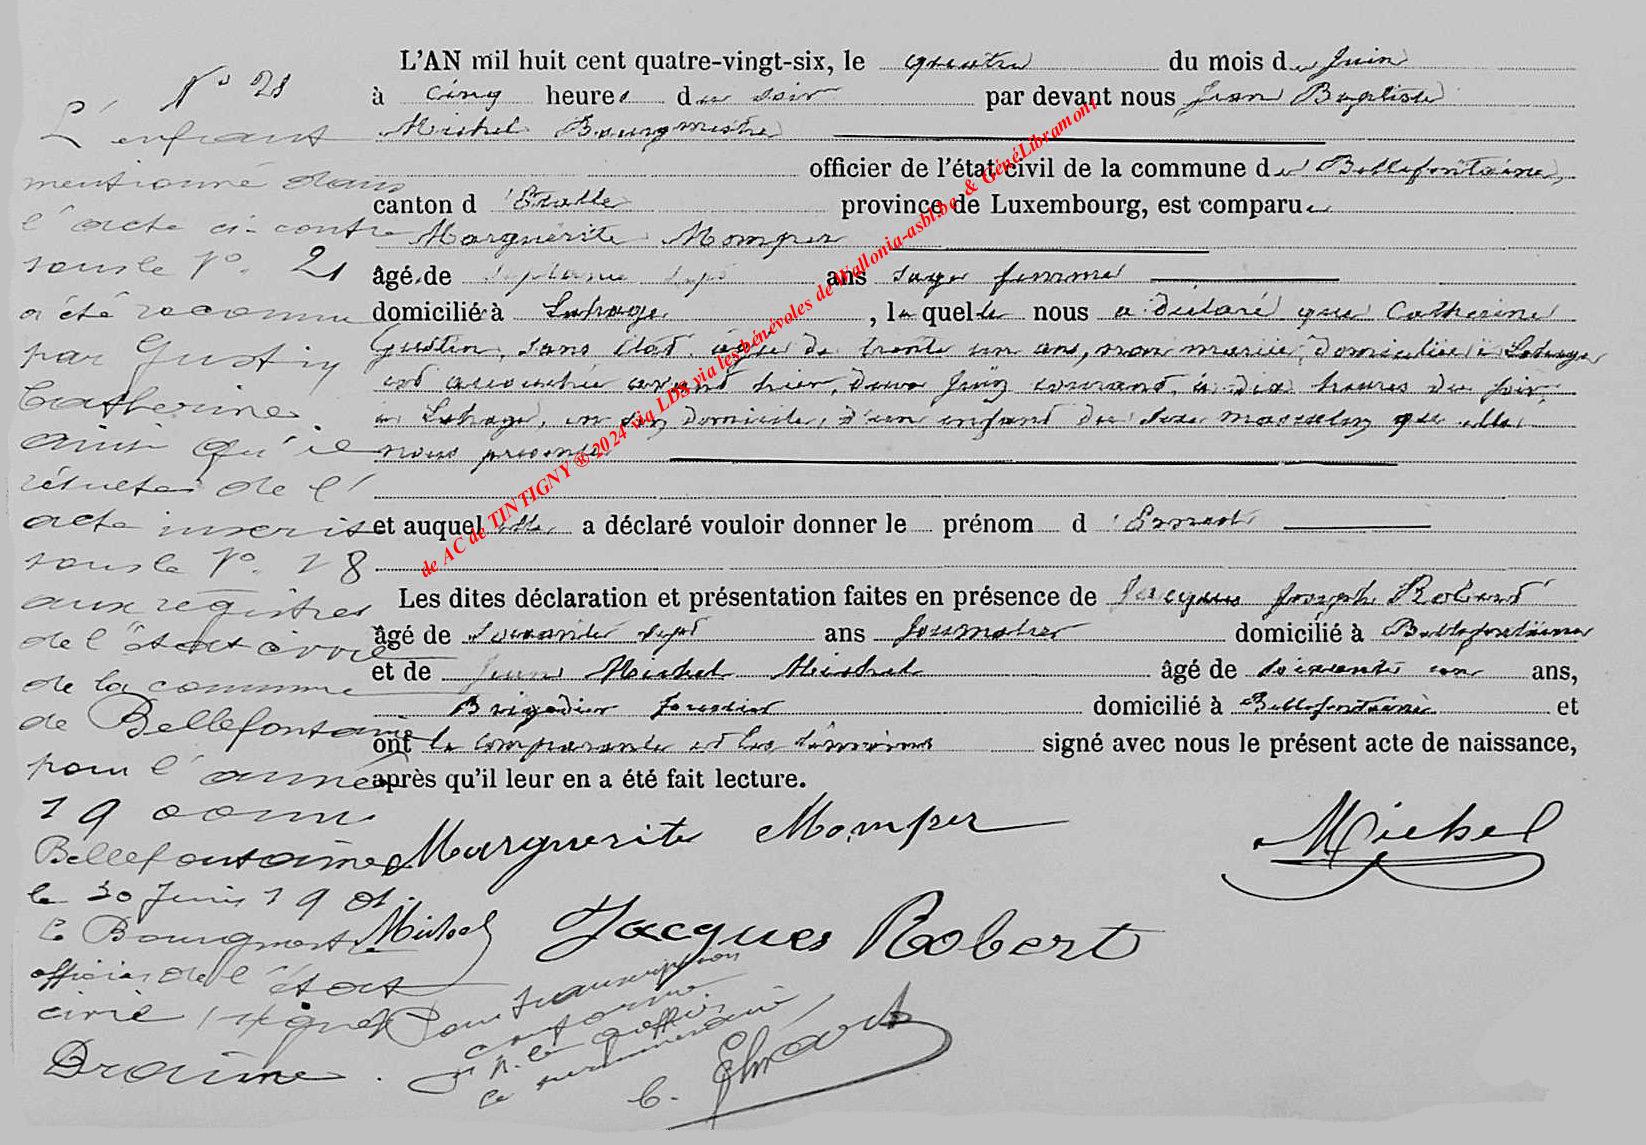 N° 21
L'enfant
mentionné dans
l'acte ci-contre
sous le N°. 21
a été reconnu
par Gustin
Catherine
ainsi qu'il
résulte de l'
acte inscrit
sous le N°. 18
aux registres
de l'état civil
de la commune
de Bellefontaine
pour l'année
Bellefontaine
le 30 Juin
le Bourgmestre
officier de l'état
civil (signé)
Braime.
L'AN mil huit cent quatre-vingt-six, le quatre du mois de Juin
à cinq heures du soir par devant nous Jean Baptiste
Michel Bourgmestre
officier de l'état civil de la commune de Bellefontaine,
canton d'Etalle province de Luxembourg, est comparue
Marguérite Momper
âgé de septante sept ans sage femme
domicilié à Lahage, laquelle nous a déclaré que Catherine
Gustin, sans état, âgée de trente un ans, non mariée, domiciliée à Lahage
est accouchée avant hier, deux Juin courant, à dix heures du soir,
à Lahage, en son domicile, d'un enfant du sexe masculin qu'elle
nous présente
et auquel elle a déclaré vouloir donner le prénom d'Ernest
Les dites déclaration et présentation faites en présence de Jacques Joseph Robert
âgé de soixante sept ans Journalier domicilié à Bellefontaine
et de Jean Michel Michel âgé de soixante un ans,
Brigadier forestier domicilié à Bellefontaine et
ont la comparante et les témoins signé avec nous le présent acte de naissance,
après qu'il leur en a été fait lecture.
Marguerite Momper
Michel
Michel
Jacques Robert
Pour transcription
conforme
le greffier
surnuméraire
de AC de TINTIGNY ® 2024 via LDS via les bénévoles de Wallonia-asbl.be & GénéLibramont